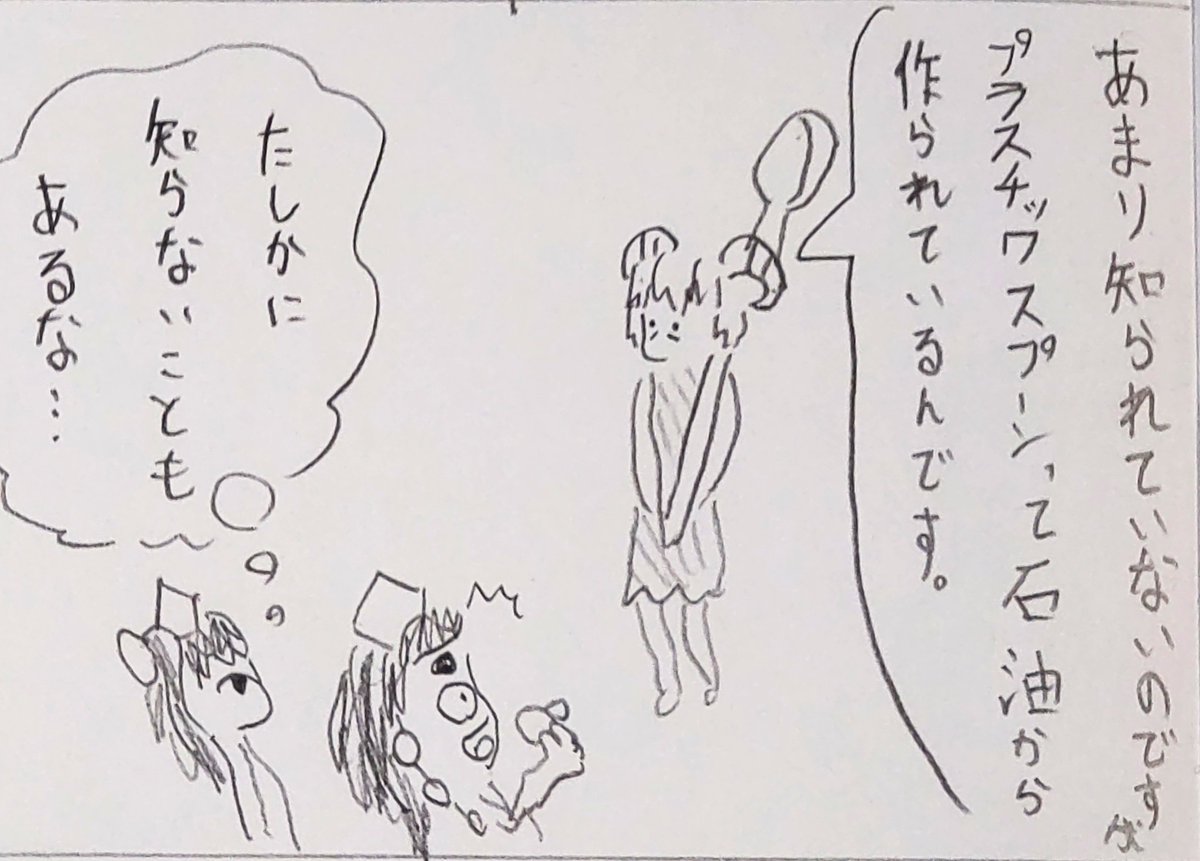 あまり知られていないのですが
プラスチックスプーンって石油から
作られているんです。
たしかに
知らないことも
あるな…